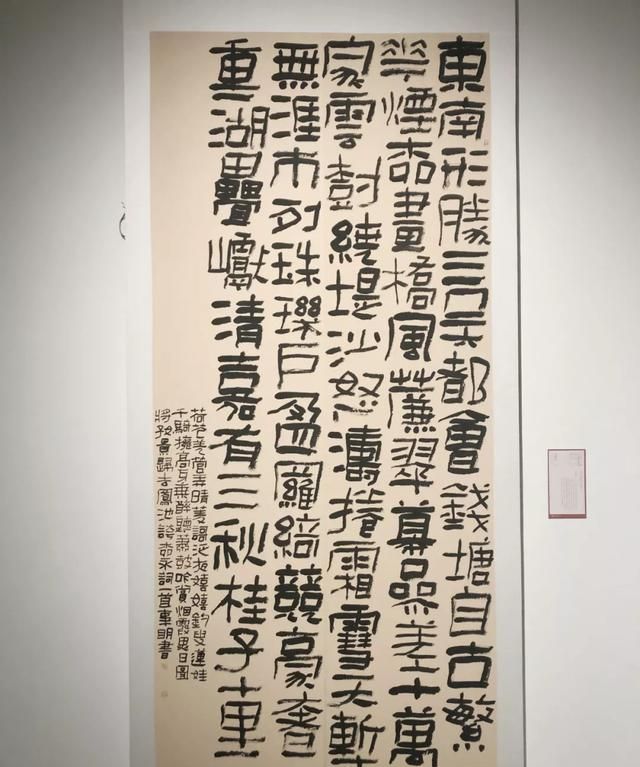 東南形勝三吳都會錢塘自古繁
華煙柳畫橋風簾翠幕參差十萬
家雲樹繞堤沙怒濤捲霜雪天塹
無涯市列珠璣戶盈羅綺競豪奢
重湖疊巘清嘉有三秋桂子十里
荷花羌管弄晴菱謳泛夜嬉嬉釣叟蓮娃
千騎擁高牙乘醉聽簫鼓吟賞烟霞異日圖
將好景歸去鳳池誇柳永詞一首明書